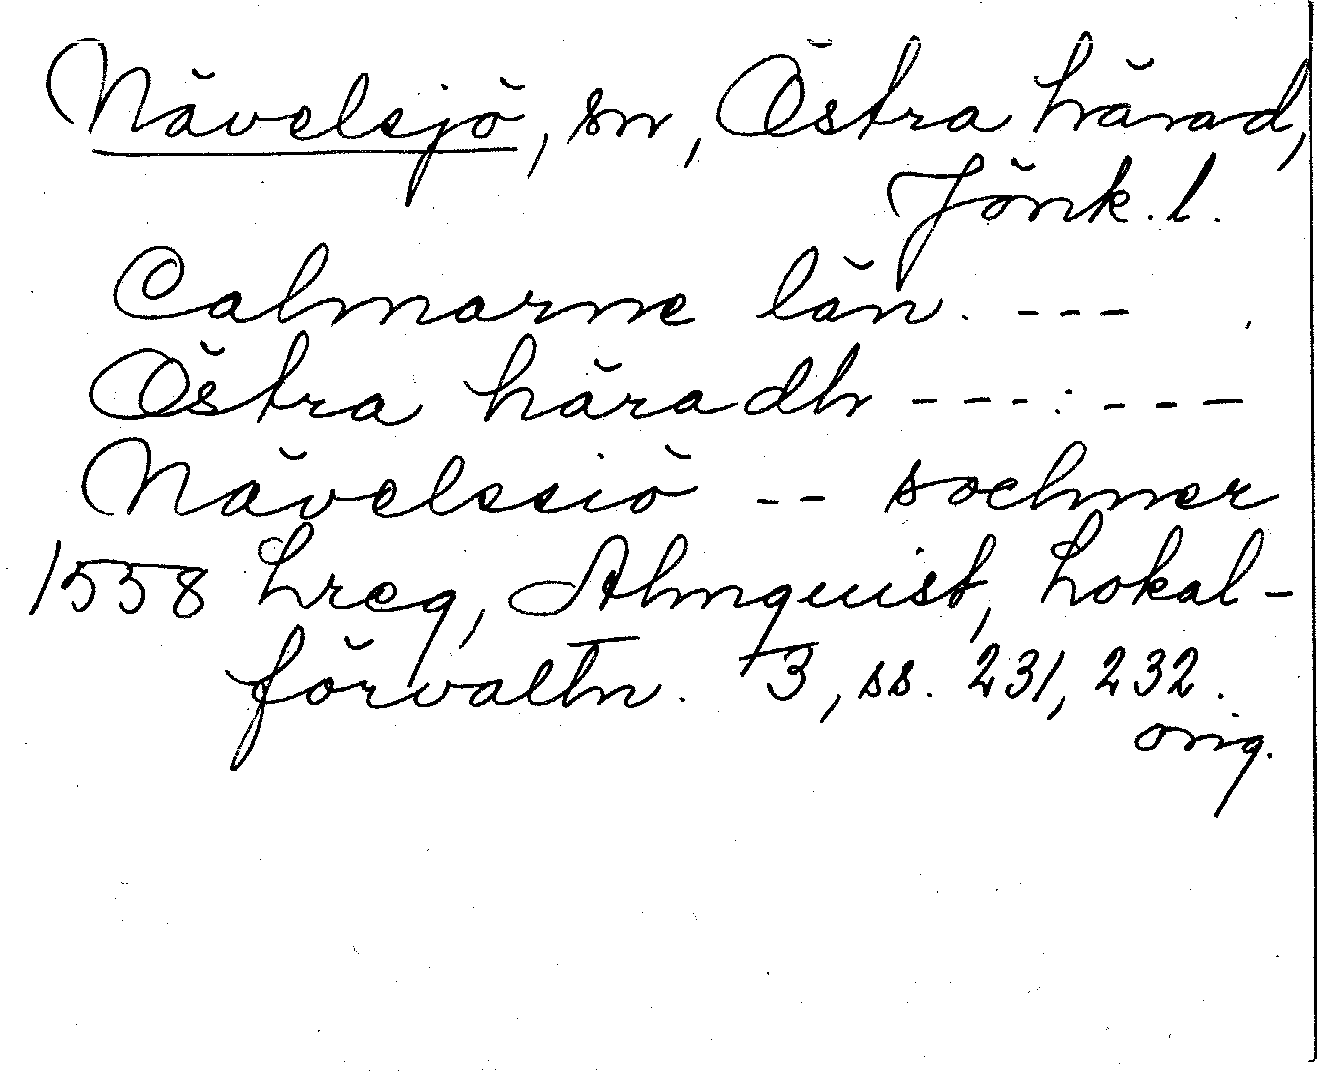 Nävelsjö, sn, Östra härad,
Jönk. l.
Calmarne län. ---
Östra häradh ---:---
Nävelssiö -- sochner
1558 Lreg, Almquist, Lokal-
förvaltn. 3, ss. 231, 232.
orig.